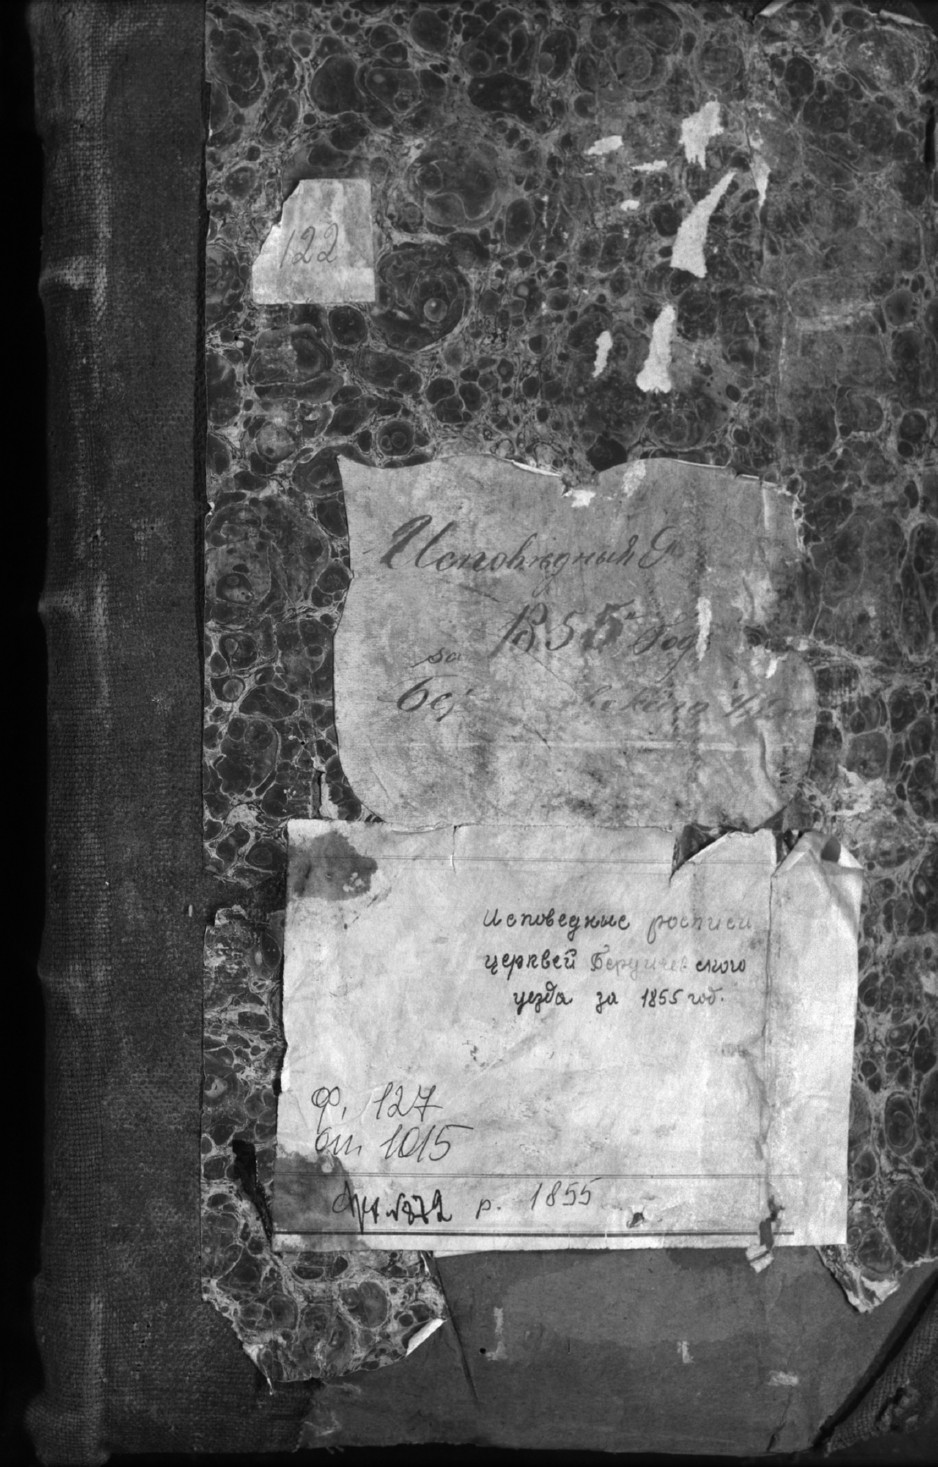 122
Исповѣдныя
за 1855 Год
Исповедные росписи
церквей ского
уезда за 1855 год.
ф. 127
оп. 1015
р. 1855